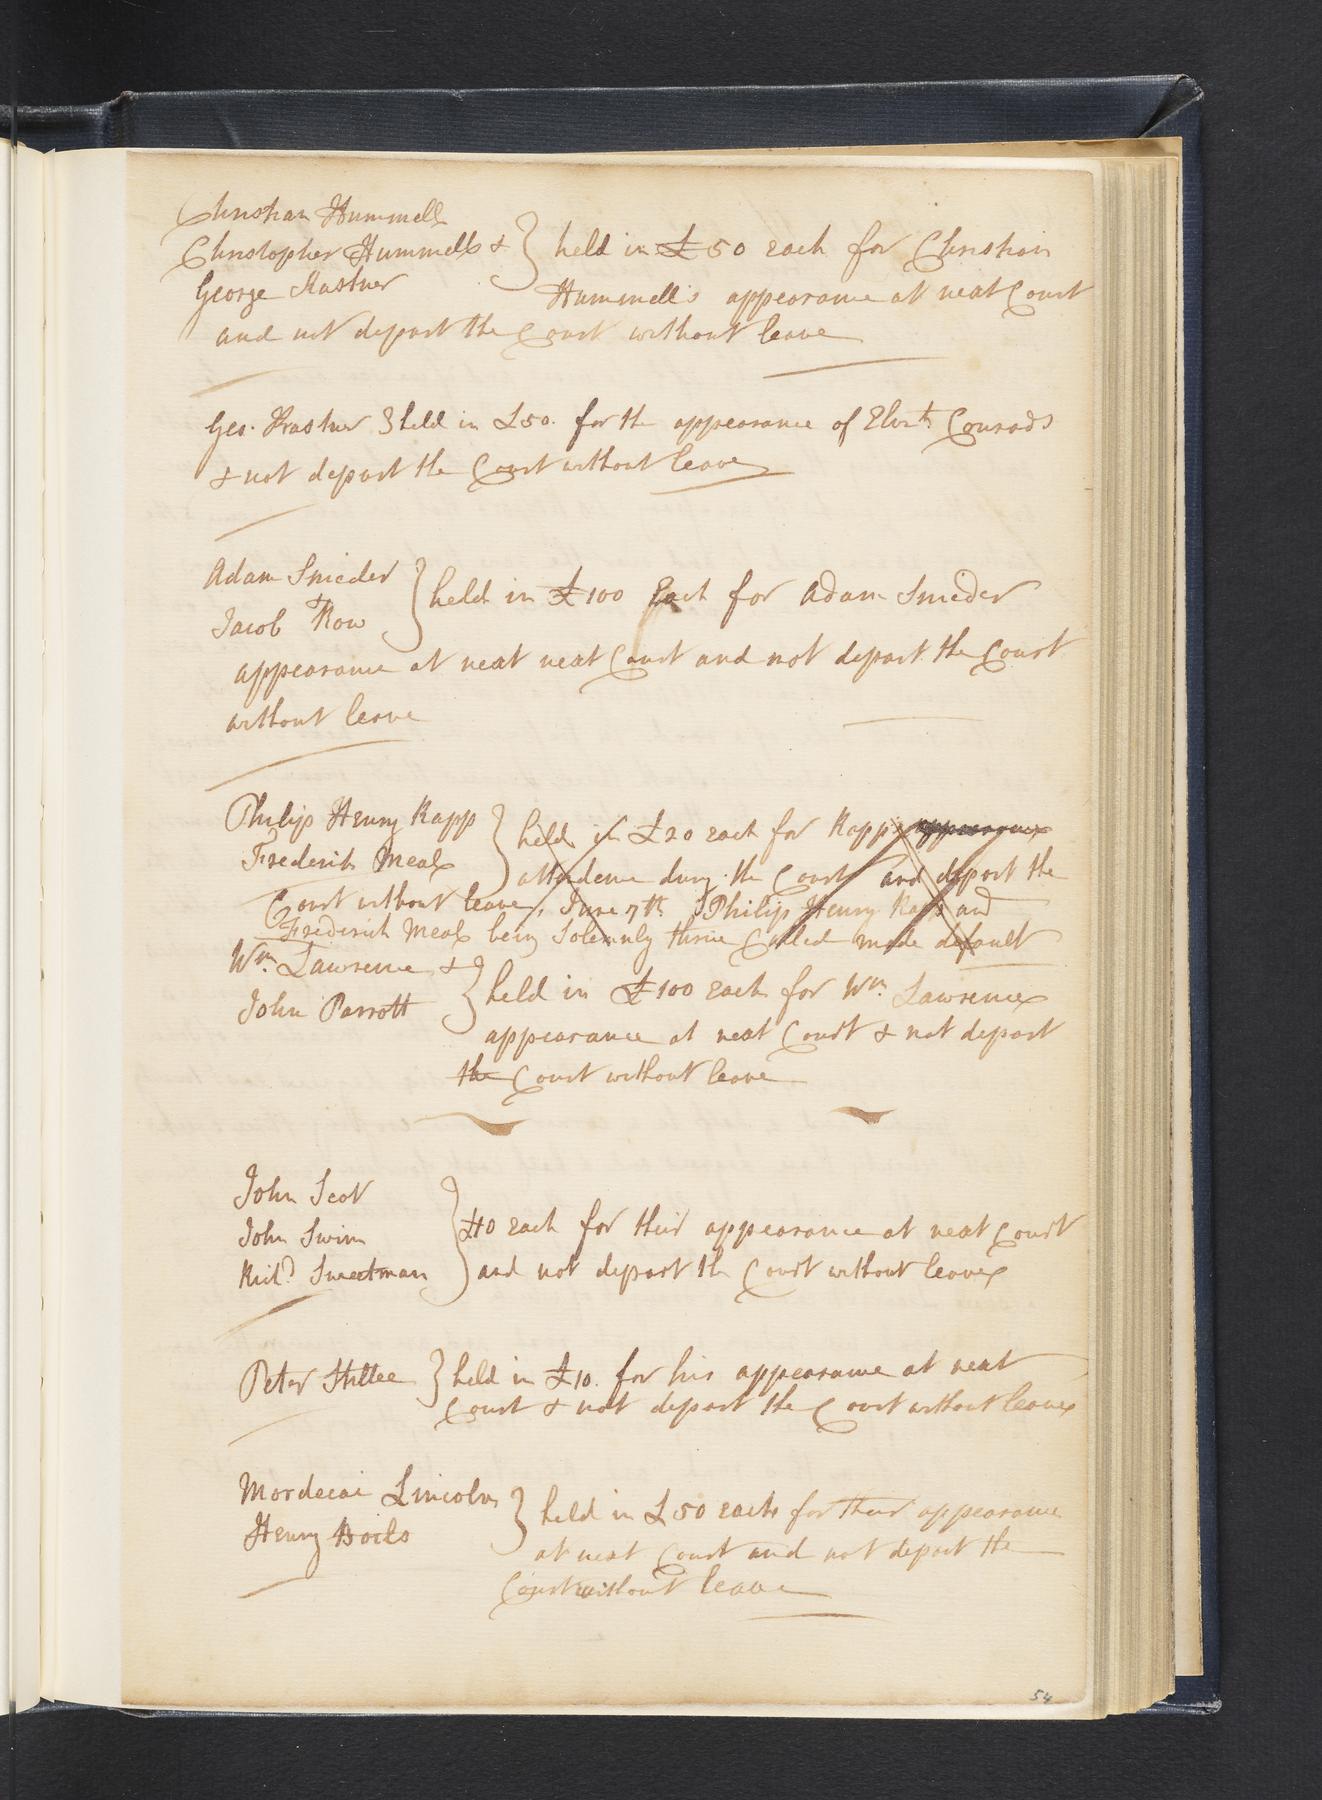 Christian Hummells
Christopher Hummells & } held in £50 each for Christian
George Kastner Hummell's appearance at next Court
and not depart the Court without leave
Geo. Krastner } held in £50. for the appearance of Elizth Conrads
& not depart the Court without leave
Adam Snieder
Jacob Row } held in £100 Each for Adam Snieder
appearance at next next Court and not depart the Court
without leave
Philip Henry Rapp } held in £20 each for Rapps appearance
Frederick Meal attendence durg. the Court and depart the
Court without leave, June 7th Philip Henry Rapp and
Frederick Meal being Solemnly thrice Called made default
Wm. Lawrence &
John Parrott } held in £100 each for Wm. Lawrence
appearance at next Court & not depart
the Court without leave
John Scot
John Swim } £40 each for their appearance at next Court
Richd Sweetman and not depart the Court without leave
Peter Stillee } held in £10. for his appearance at next
Court & not depart the Court without leave
Mordecai Lincoln } held in £50 each for their appearance
Henry Boils at next Court and not depart the
Court without leave
54